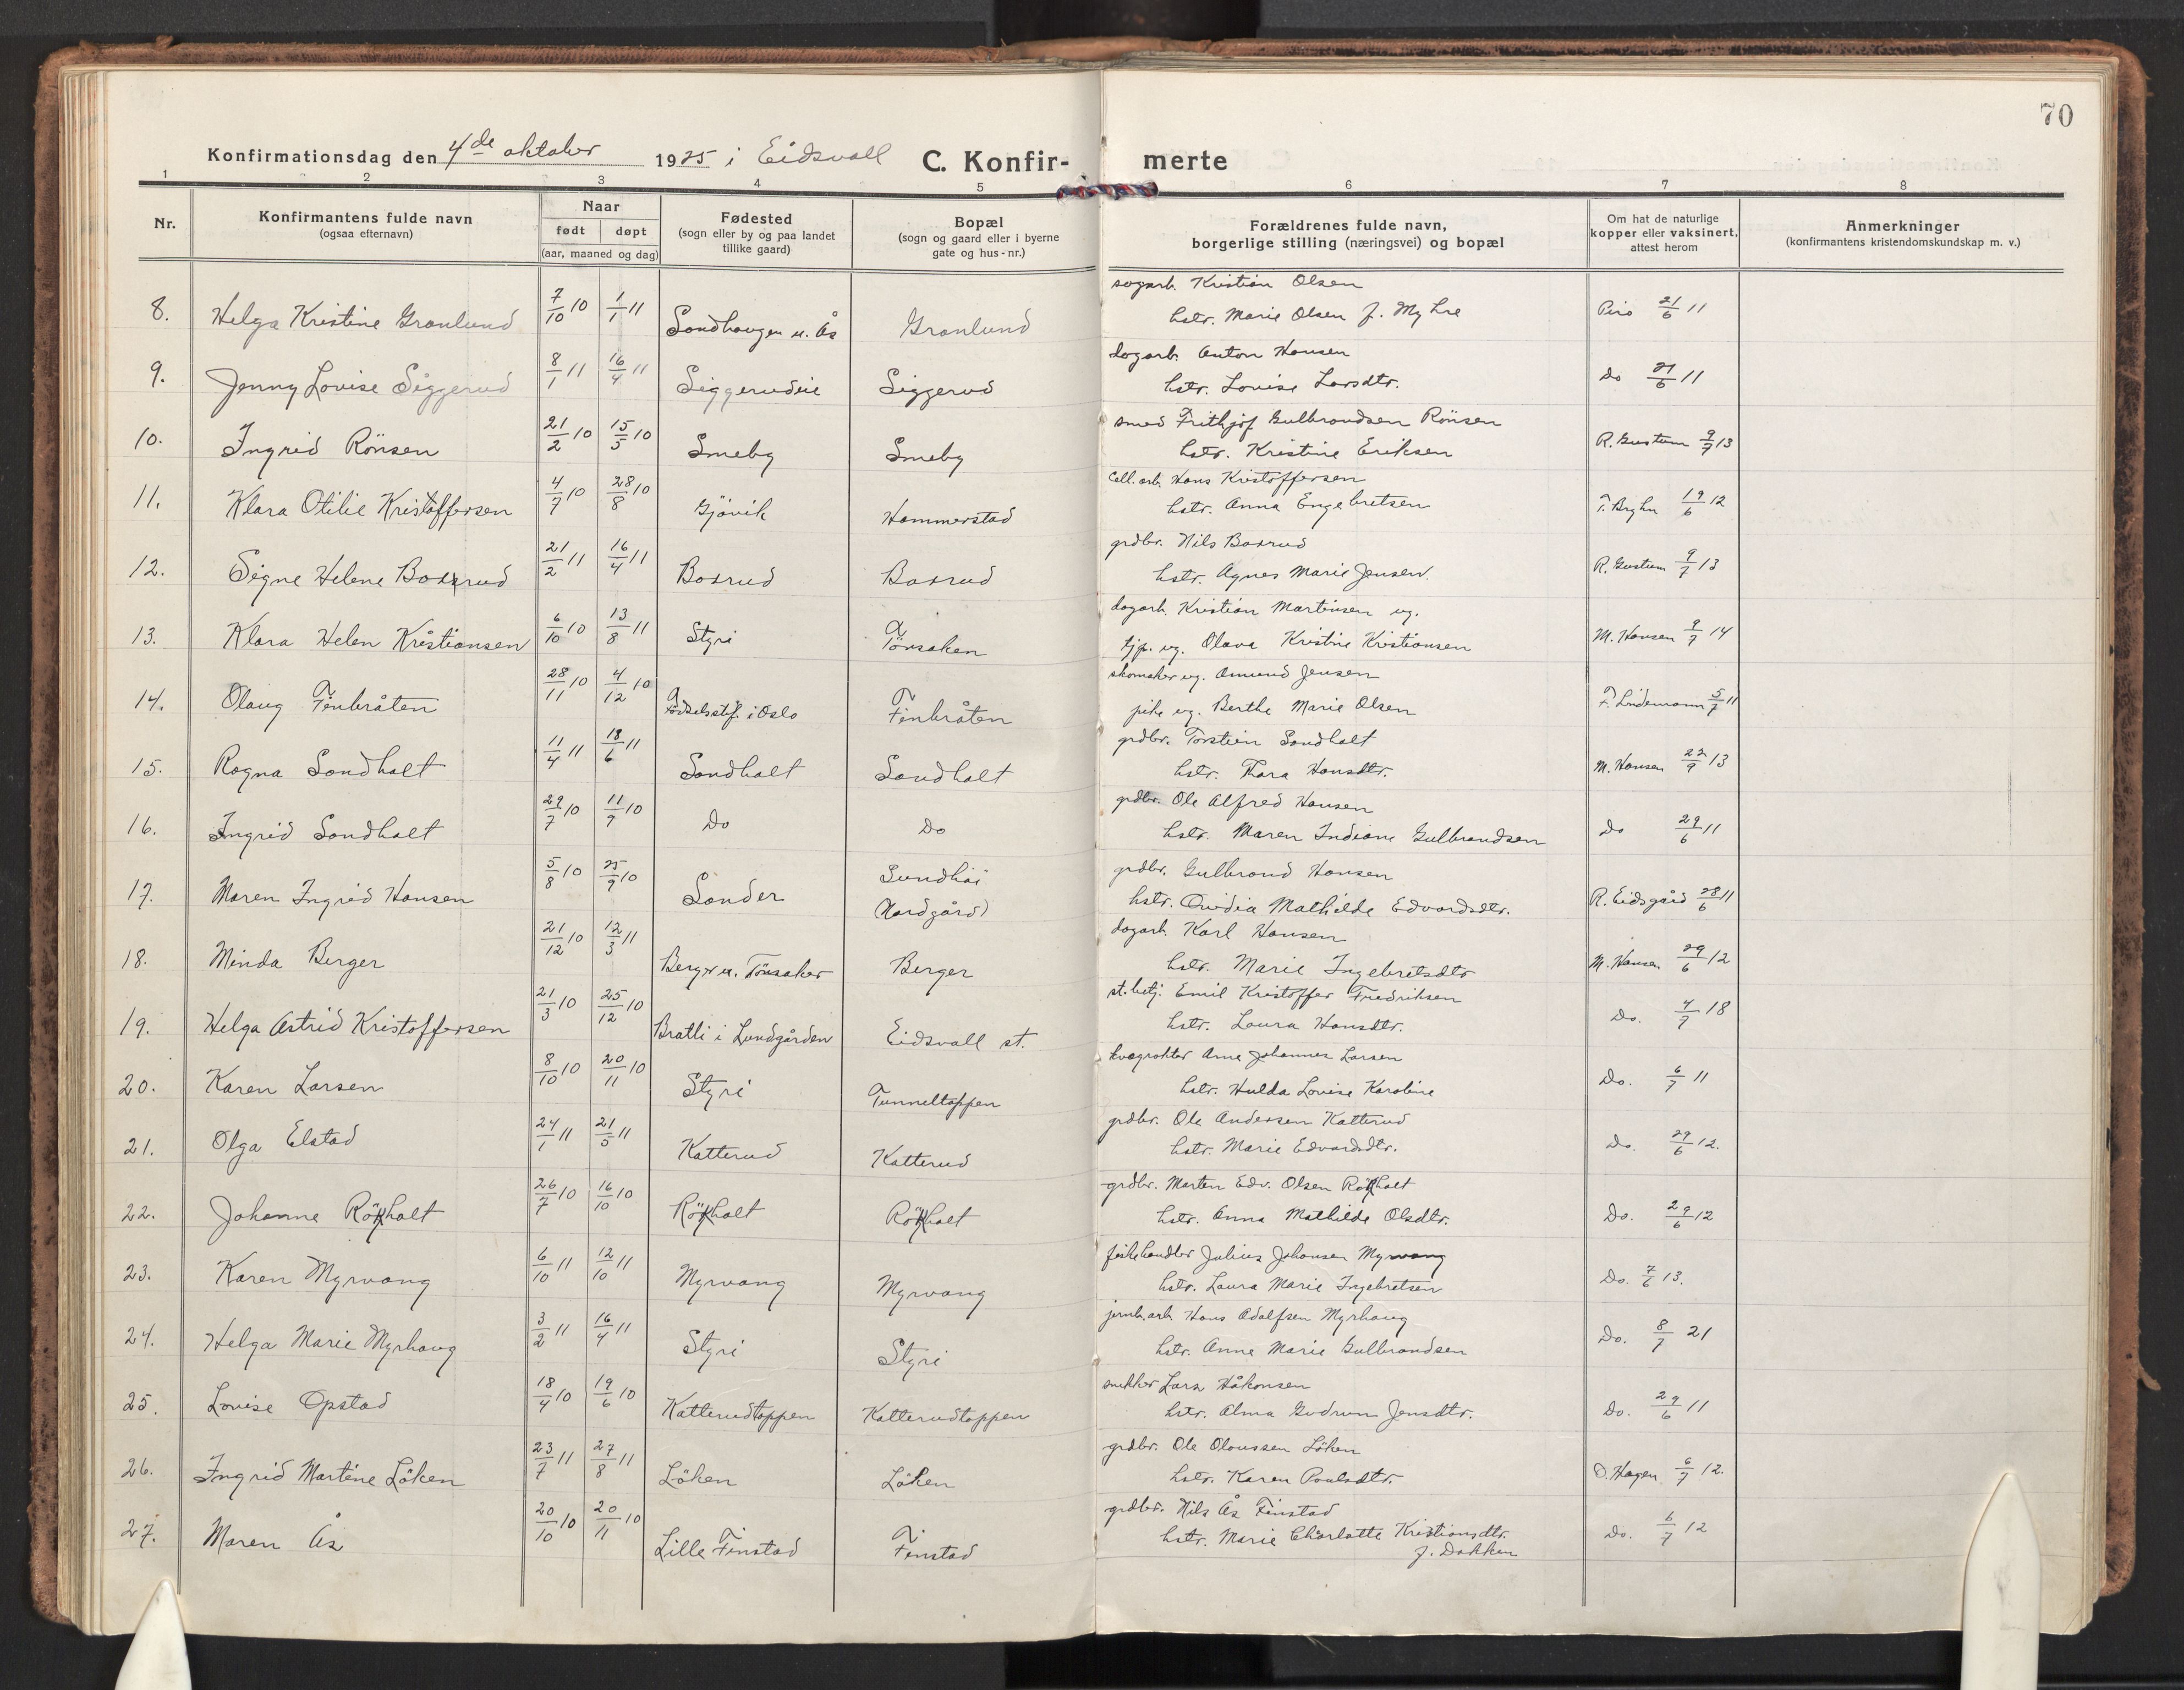 70
Konfirmationsdag den 4de oktober 1925 i Eidsvoll C. Konfir- merte
1 2 3 4 5 6 7 8
Nr.
Konfirmantens fulde navn
(ogsaa efternavn)
Naar
født døpt
(aar, maaned og dag)
Fødested
(sogn eller by og paa landet
tillike gaard)
Bopæl
(sogn og gaard eller i byerne
gate og hus-nr.)
Forældrenes fulde navn,
borgerlige stilling (næringsvei) og bopæl
Om hat de naturlige
kopper eller vaksinert,
attest herom
Anmerkninger
(konfirmantens kristendomskundskap m. v.)
sagarb. Kristian Olsen
8. Helga Kristine Granlund 7/10 10 1/1 11 Sandhaugen u. Ås Granlund hstr. Marie Olsen f. Myhre Piro 21/6 11
dagarb. Anton Hansen
9. Jenny Lovise Siggerud 8/1 11 16/4 11 Siggerudeie Siggerud hstr. Lovise Larsdtr. Do 21/6 11
smed Frithjof Gulbrandsen Rönsen
10. Ingrid Rönsen 21/2 10 15/5 10 Smeby Smeby hstr. Kristine Eriksen R. Gustum 9/7 13
Cell. arb. Hans Kristoffersen
11. Klara Otilie Kristoffersen 4/7 10 28/8 10 Gjövik Hammerstad hstr. Anna Engebretsen T. Bryhn 19/6 12
grdbr. Nils Bakrud
12. Signe Helene 21/2 11 16/4 11 hstr. Agnes Marie Jensen. R. Gustum 9/7 13
dagarb. Kristian Martinsen ug.
13. Klara Helen Kristiansen 6/10 10 13/8 11 Styri Tönsaken tjp. ug. Olava Kristine Kristiansen M. Hansen 9/7 14
skomaker ug. Amund Jensen
14. Olaug Finbråten 28/11 10 4/12 10 Födselsstif. i Oslo Finbråten pike ug. Berthe Marie Olsen F. Lindemann 5/7 11
grdbr. Torstein Sandholt
15. Ragna Sandholt 11/4 11 18/6 11 Sandholt Sandholt hstr. Thora Hansdtr. M. Hansen 22/9 13
grdbr. Ole Alfred Hansen
16. Ingrid Sandholt 29/7 10 11/9 10 Do Do hstr. Maren Indiane Gulbrandsen Do 29/6 11
grdbr. Gulbrand Hansen
17. Maren Ingrid Hansen 5/8 10 25/9 10 Sander Sundhöi hstr. Ovidia Mathilde Edvardsdtr. R. Eidsgård 28/6 11
(Nordgård)
dagarb. Karl Hansen
18. Minda Berger 21/12 10 12/3 11 Berger u. Tönsaker Berger hstr. Marie Ingebretsdtr M. Hansen 29/6 12
st. betj. Emil Kristoffer Fredriksen
19. Helga Astrid Kristoffersen 21/3 10 25/12 10 Bratli i Lundgården Eidsvoll st. hstr. Laura Hansdtr. Do. 4/7 18
kvegrøkter Arne Johannes Larsen
20. Karen Larsen 8/10 10 20/11 10 Styri Tunneltoppen hstr. Hulda Lovise Karoline Do. 6/7 11
grdbr. Ole Andersen Katterud
21. Olga Elstad 24/1 11 21/5 11 Katterud Katterud hstr. Marie Edvardsdtr. Do. 29/6 12.
grdbr. Morten Edv. Olsen Rökholt
22. Johanne Rökholt 26/7 10 16/10 10 Rökholt Rökholt hstr. Anna Mathilde Olsdtr. Do. 29/6 12
fiskehandler Julius Johansen Myrvang
23. Karen Myrvang 6/10 11 12/10 11 Myrvang Myrvang hstr. Laura Marie Ingebretsen Do. 7/6 13.
jernb. arb. Hans Adolfsen Myrhaug
24. Helga Marie Myrhaug 3/2 11 16/4 11 Styri Styri hstr. Anne Marie Gulbrandsen Do. 8/7 21
snekker Lars Håkonsen
25. Lovise Opstad 18/4 10 19/6 10 Katterudtoppen Katterudtoppen hstr. Alma Gudrun Jensdtr. Do. 29/6 11
grdbr. Ole Oloussen Löken
26. Ingrid Martine Löken 23/7 11 27/8 11 Löken Löken hstr. Karen Paulsdtr. O. Hagen 6/7 12.
grdbr. Nils Ås Finstad
27. Maren Ås 20/10 10 20/11 10 Lille Finstad Finstad hstr. Marie Charlotte Kristiansdtr. Do. 6/7 12
f. Dokken